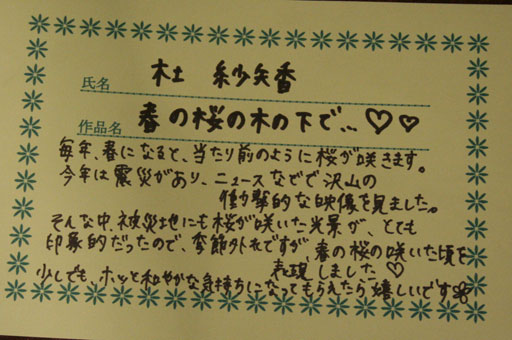 氏名 杜 紗矢香
作品名 春の桜の木の下で…♡♡
毎年、春になると、当たり前のように桜が咲きます。
今年は震災があり、ニュースなどで沢山の
衝撃的な映像を見ました。
そんな中、被災地にも桜が咲いた光景が、とても
印象的だったので、季節外れですが、春の桜の咲いた頃を
表現しました♡
少しでも、ホッと和やかな気持ちになってもらえたら嬉しいです